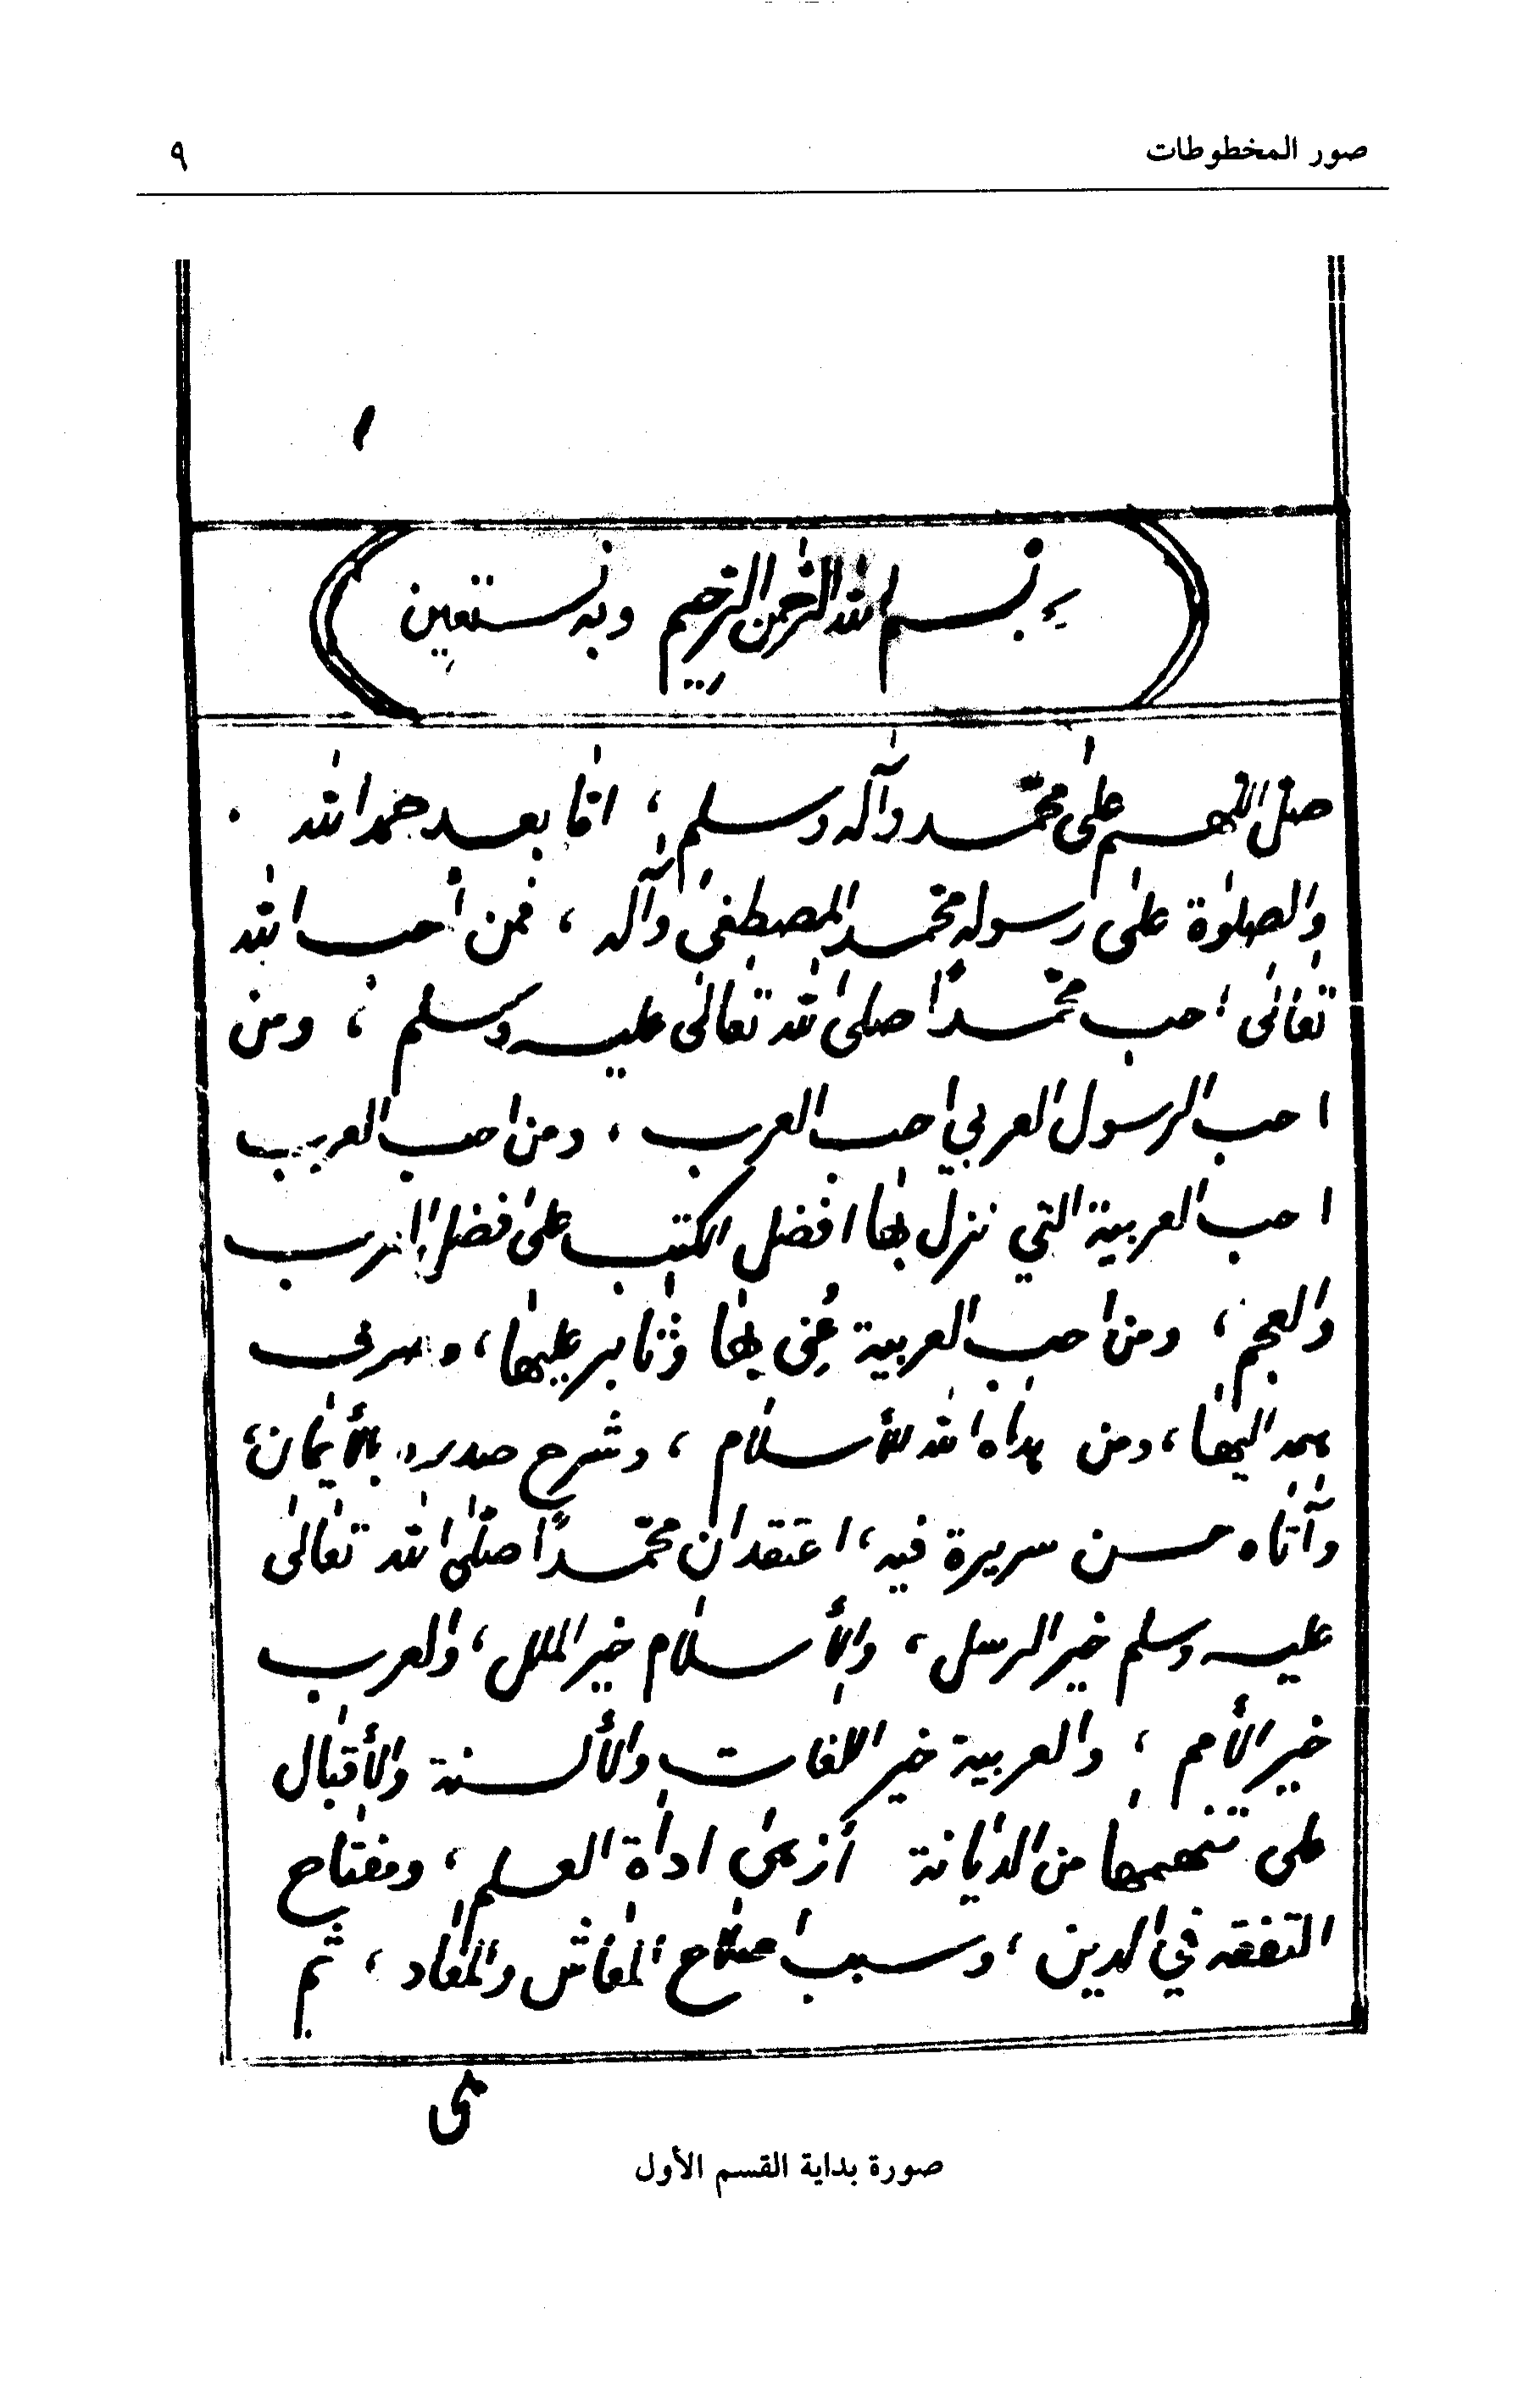 صور المخطوطات
٩
بسم الله الرحمن الرحيم وبه نستعين
صل اللهم على محمد وآله وسلم، اما بعد حمد الله
والصلوة على رسوله محمد المصطفى وآله، فمن أحب الله
تعالى احب محمدًا صلى الله تعالى عليه وسلم، ومن
احب الرسول العربي احب العرب، ومن احب العرب
احب العربية التي نزل بها افضل الكتب على افضل العرب
والعجم، ومن احب العربية عُني بها وثابر عليها، وصرف
همه اليها، ومن هداه الله للأسلام، وشرح صدره بالأيمان،
وآتاه حسن سريرة فيه، اعتقد ان محمدًا صلى الله تعالى
عليه وسلم خير الرسل، والأسلام خير الملل، والعرب
خير الأمم، والعربية خير اللغات والألسنة والأقبال
على تفهمها من الديانة أز هى اداة العلم، ومفتاح
التفقه في الدين، وسبب اصلاح المعاش والمعاد، ثم
هي
صورة بداية القسم الأول